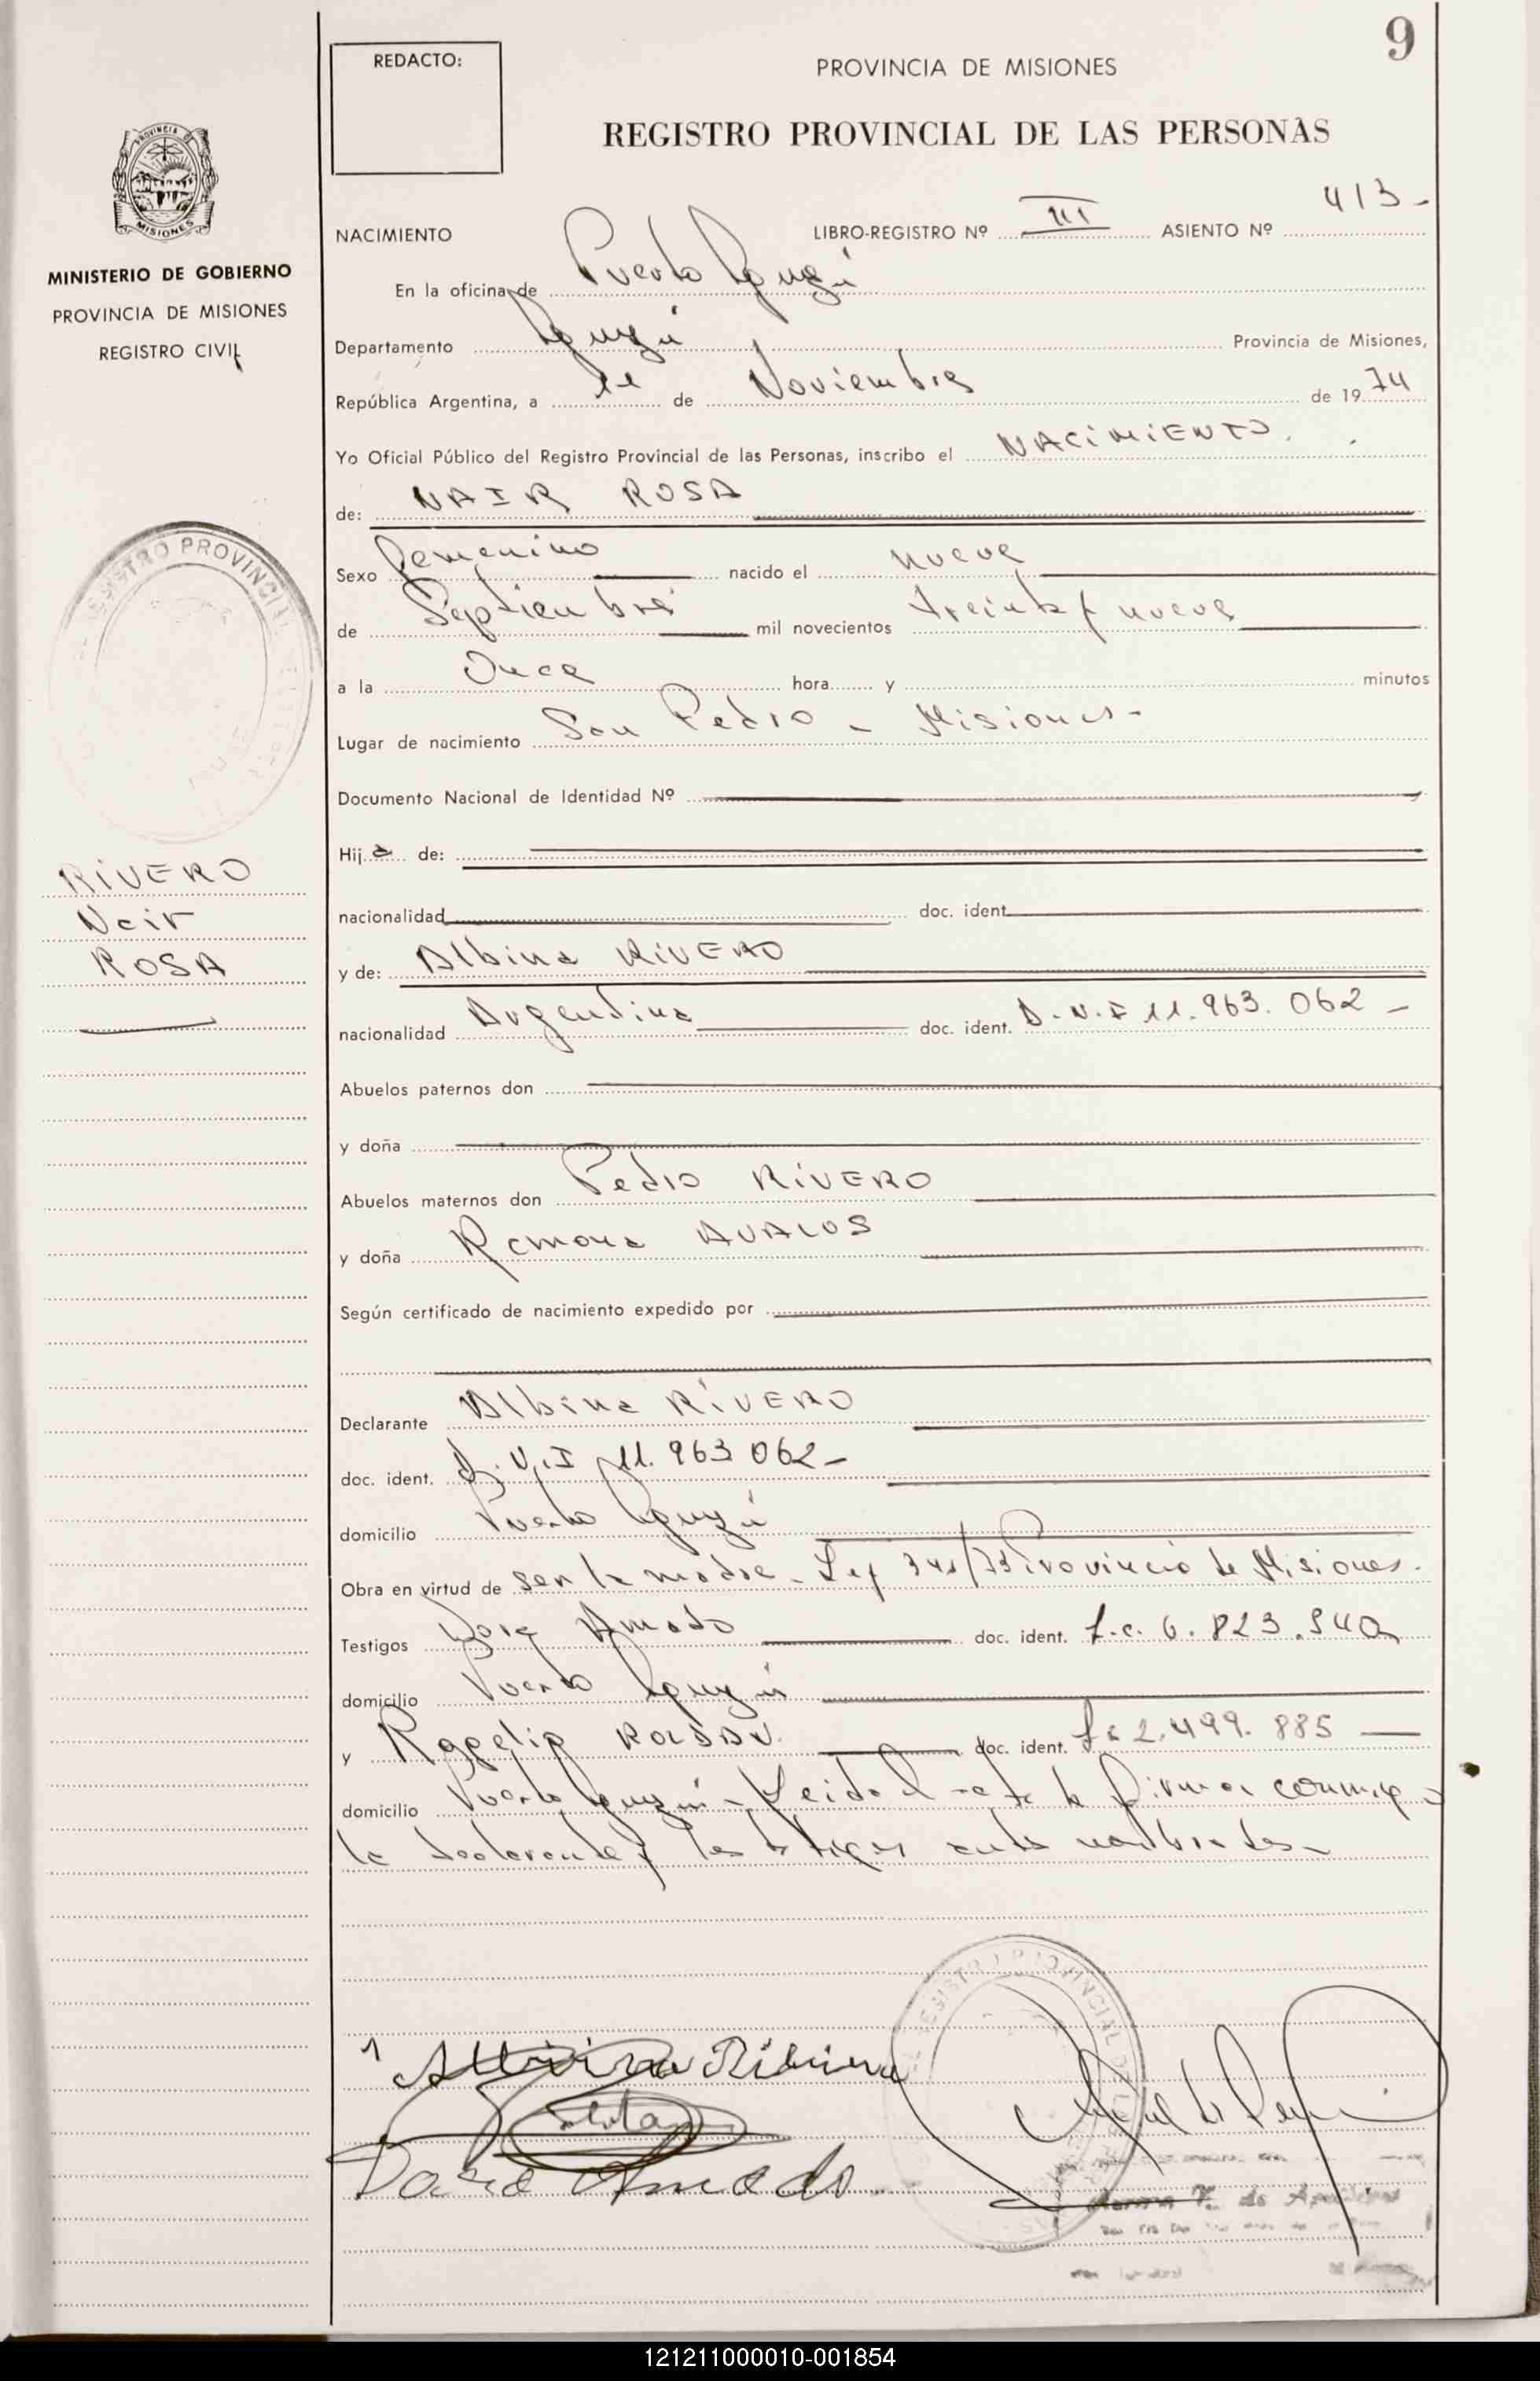 9
REDACTO:
PROVINCIA DE MISIONES
REGISTRO PROVINCIAL DE LAS PERSONAS
PROVINCIA DE
MISIONES
MINISTERIO DE GOBIERNO
PROVINCIA DE MISIONES
REGISTRO CIVIL
NACIMIENTO LIBRO-REGISTRO Nº III ASIENTO Nº 413-
En la oficina de Puerto Iguazú
Departamento Iguazú Provincia de Misiones,
República Argentina, a de Noviembre de 1974
Yo Oficial Público del Registro Provincial de las Personas, inscribo el NACIMIENTO.
de: NAIR ROSA
Sexo Femenino nacido el nueve
de Septiembre mil novecientos treinta y nueve
a la Once hora y minutos
Lugar de nacimiento San Pedro - Misiones-
Documento Nacional de Identidad Nº
Hija de:
nacionalidad doc. ident.
y de: Albina RIVERO
nacionalidad Argentina doc. ident. D.N.I 11.963.062-
Abuelos paternos don
y doña
Abuelos maternos don Pedro RIVERO
y doña Ramona AVALOS
Según certificado de nacimiento expedido por
Declarante Albina RIVERO
doc. ident. D.N.I 11.963.062-
domicilio Puerto Iguazú
Obra en virtud de ser la madre - Ley /73 Provincia de Misiones.
Testigos Amado doc. ident. L.c. 6.823.940
domicilio Puerto Iguazú
y Rogelio ROLDAN. doc. ident. 2.499.885
domicilio Puerto Iguazú - Leida el acta la firman conmigo
la declarante y los testigos ante nombrados-
REGISTRO PROVINCIAL
RIVERO
Nair
ROSA
REGISTRO PROVINCIAL DE LAS
Amado.
121211000010-001854